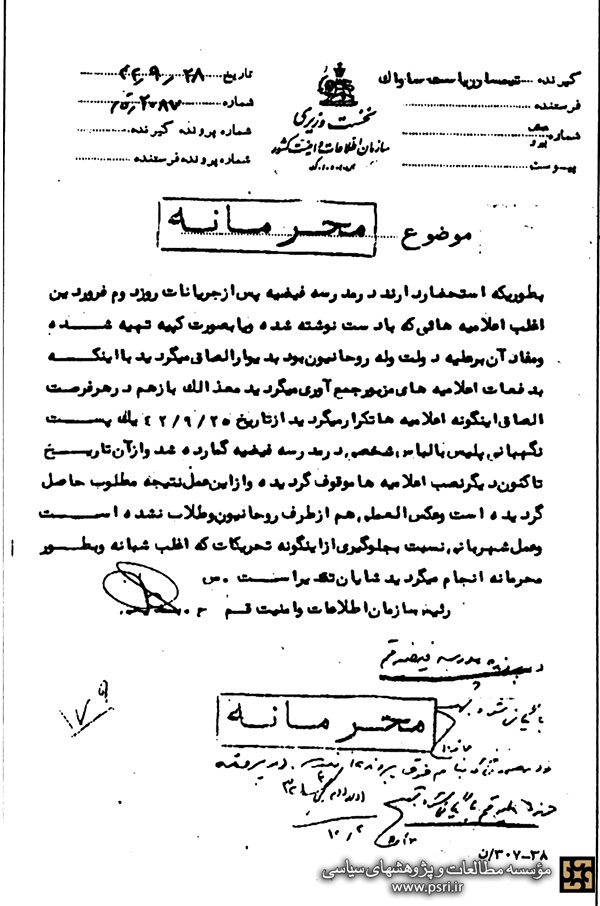 گیرنده تیمسار ریاست ساواك
فرستنده
شماره
پیوست
نخست وزیری
سازمان اطلاعات و امنیت کشور
س.ا.و.ا.ك
تاریخ ۴۲/۹/۲۸
شماره ۲۰۸۷/ق
شماره پرونده گیرنده
شماره پرونده فرستنده
موضوع محرمانه
بطوریکه استحضار دارند در مدرسه فیضیه پس از جریانات روز دوم فروردین
اغلب اعلامیه هائی که با دست نوشته شده و یا بصورت کپیه تهیه شده
و مفاد آن بر علیه دولت و له روحانیون بود بدیوار الصاق میگردید با اینکه
بدفعات اعلامیه های مزبور جمع آوری میگردید معذالك باز هم در هر فرصت
الصاق اینگونه اعلامیه ها تکرار میگردید از تاریخ ۴۲/۹/۲۵ یك پست
نگهبانی پلیس با لباس شخصی در مدرسه فیضیه گمارده شد و از آن تاریخ
تاکنون دیگر نصب اعلامیه ها موقوف گردیده و از این عمل نتیجه مطلوب حاصل
گردیده است و عکس العملی هم از طرف روحانیون و طلاب نشده است
و عمل شهربانی نسبت بجلوگیری از اینگونه تحریکات که اغلب شبانه و بطور
محرمانه انجام میگردید شایان تقدیر است . س
رئیس سازمان اطلاعات و امنیت قم
مدرسه فیضیه قم
۱۷
محرمانه
۱۰/۲
۳۸-۳۰۷/ن
مؤسسه مطالعات و پژوهشهای سیاسی
www.psri.ir